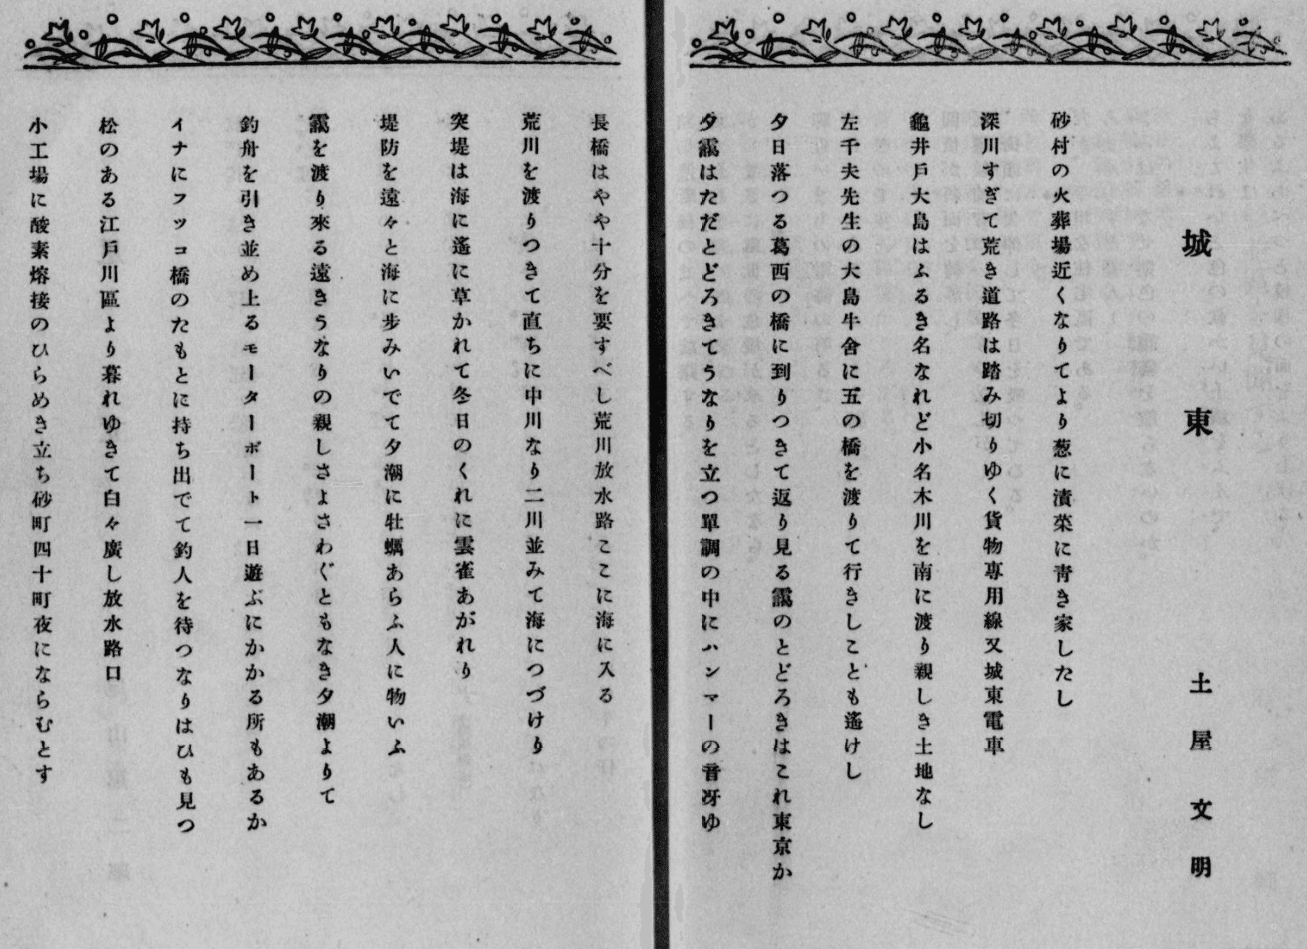 城東
土屋文明
砂村の火葬場近くなりてより葱に漬菜に靑き家したし
深川すぎて荒き道路は踏み切りゆく貨物専用線又城東電車
龜井戸大島はふるき名なれど小名木川を南に渡り親しき土地なし
左千夫先生の大島牛舎に五の橋を渡りて行きしことも遙けし
夕日落つる葛西の橋に到りつきて返り見る靄のとどろきはこれ東京か
夕靄はただとどろきてうなりを立つ單調の中にハンマーの音冴ゆ
長橋はやや十分を要すべし荒川放水路ここに海に入る
荒川を渡りつきて直ちに中川なり二川並みて海につづけり
突堤は海に遙に草かれて冬日のくれに雲雀あがれり
堤防を遠々と海に步みいでて夕潮に牡蠣あらふ人に物いふ
靄を渡り來る遠きうなりの親しさよさわぐともなき夕潮よりて
釣舟を引き並め上るモーターボート一日遊ぶにかかる所もあるか
イナにフツコ橋のたもとに持ち出でて釣人を待つなりはひも見つ
松のある江戸川區より暮れゆきて白々廣し放水路口
小工場に酸素熔接のひらめき立ち砂町四十町夜にならむとす